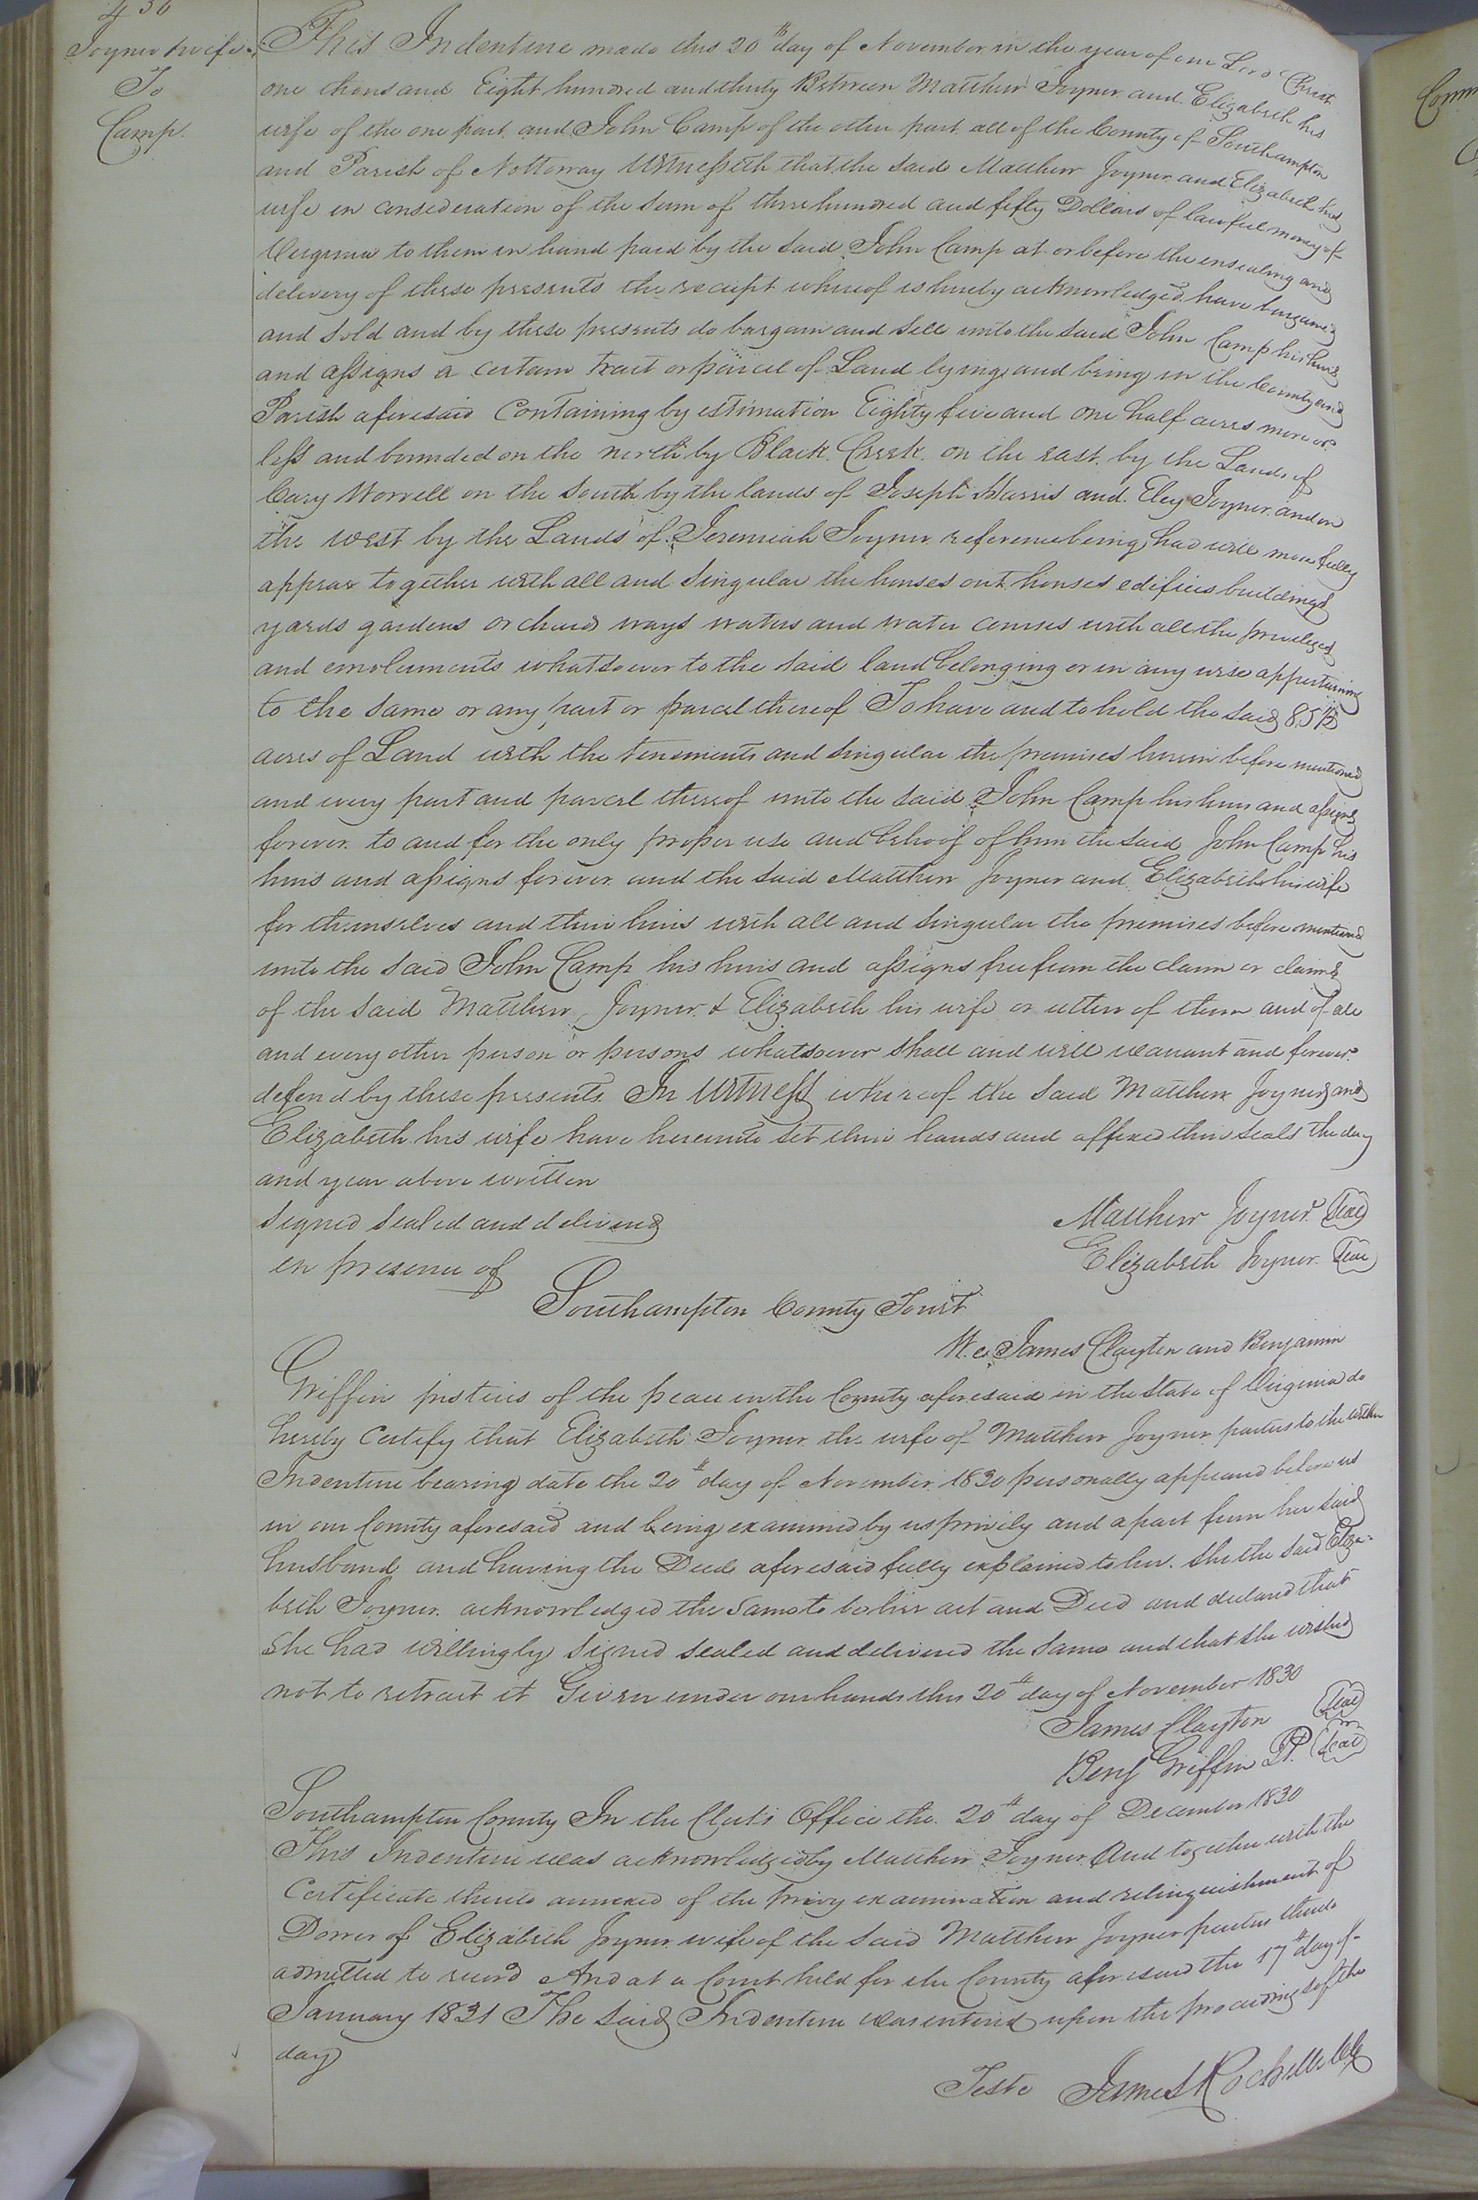 436
Joyner & wife
To
Camp.
This Indenture made this 20th day of November in the year of our Lord Christ
one thousand Eight hundred and thirty Between Matthew Joyner and Elizabeth his
wife of the one part and John Camp of the other part all of the County of Southampton
and Parish of Nottoway Witnesseth that the said Matthew Joyner and Elizabeth his
wife in consideration of the sum of three hundred and fifty Dollars of lawful money of
Virginia to them in hand paid by the said John Camp at or before the ensealing and
delivery of these presents the receipt whereof is hereby acknowledged have bargained
and sold and by these presents do bargain and sell unto the said John Camp his heirs
and assigns a certain tract or parcel of Land lying and being in the County and
Parish aforesaid Containing by estimation Eighty five and one half acres more or
less and bounded on the north by Black Creek on the east by the Lands of
Cary Worrell on the South by the lands of Joseph Harris and Eley Joyner and on
the west by the Lands of Jeremiah Joyner reference being had will more fully
appear together with all and singular the houses out houses edifices buildings
yards gardens orchards ways waters and water courses with all the privileges
and emoluments whatsoever to the said land belonging or in any wise appertaining
to the same or any part or parcel thereof To have and to hold the said 85 1/2
acres of Land with the tenements and singular the premises herein before mentioned
and every part and parcel thereof unto the said John Camp his heirs and assigns
forever to and for the only proper use and behoof of him the said John Camp his
heirs and assigns forever and the said Matthew Joyner and Elizabeth his wife
for themselves and their heirs with all and singular the premises before mentioned
unto the said John Camp his heirs and assigns free from the claim or claims
of the said Matthew Joyner & Elizabeth his wife or either of them and of all
and every other person or persons whatsoever shall and will warrant and forever
defend by these presents In Witness whereof the said Matthew Joyner and
Elizabeth his wife have hereunto set their hands and affixed their seals the day
and year above written
Signed Sealed and delivered
in presence of
Matthew Joyner Seal
Elizabeth Joyner Seal
Southampton County Towit
We James Clayton and Benjamin
Griffin justices of the peace in the County aforesaid in the State of Virginia do
hereby Certify that Elizabeth Joyner the wife of Matthew Joyner parties to the within
Indenture bearing date the 20th day of November 1830 personally appeared before us
in our County aforesaid and being examined by us privily and apart from her said
husband and having the Deed aforesaid fully explained to her. She the said Eliza-
beth Joyner acknowledged the same to be her act and Deed and declared that
she had willingly signed sealed and delivered the same and that she wished
not to retract it Given under our hands this 20th day of November 1830
James Clayton Seal
Benj Griffin J.P. Seal
Southampton County In the Clerk's Office the 20th day of December 1830
This Indenture was acknowledged by Matthew Joyner And together with the
Certificate thereto annexed of the privy examination and relinquishment of
Dower of Elizabeth Joyner wife of the said Matthew Joyner parties thereto
admitted to record And at a Court held for the County aforesaid the 17th day of
January 1831 The said Indenture was entered upon the proceedings of the
day
Teste James Rochelle Clk